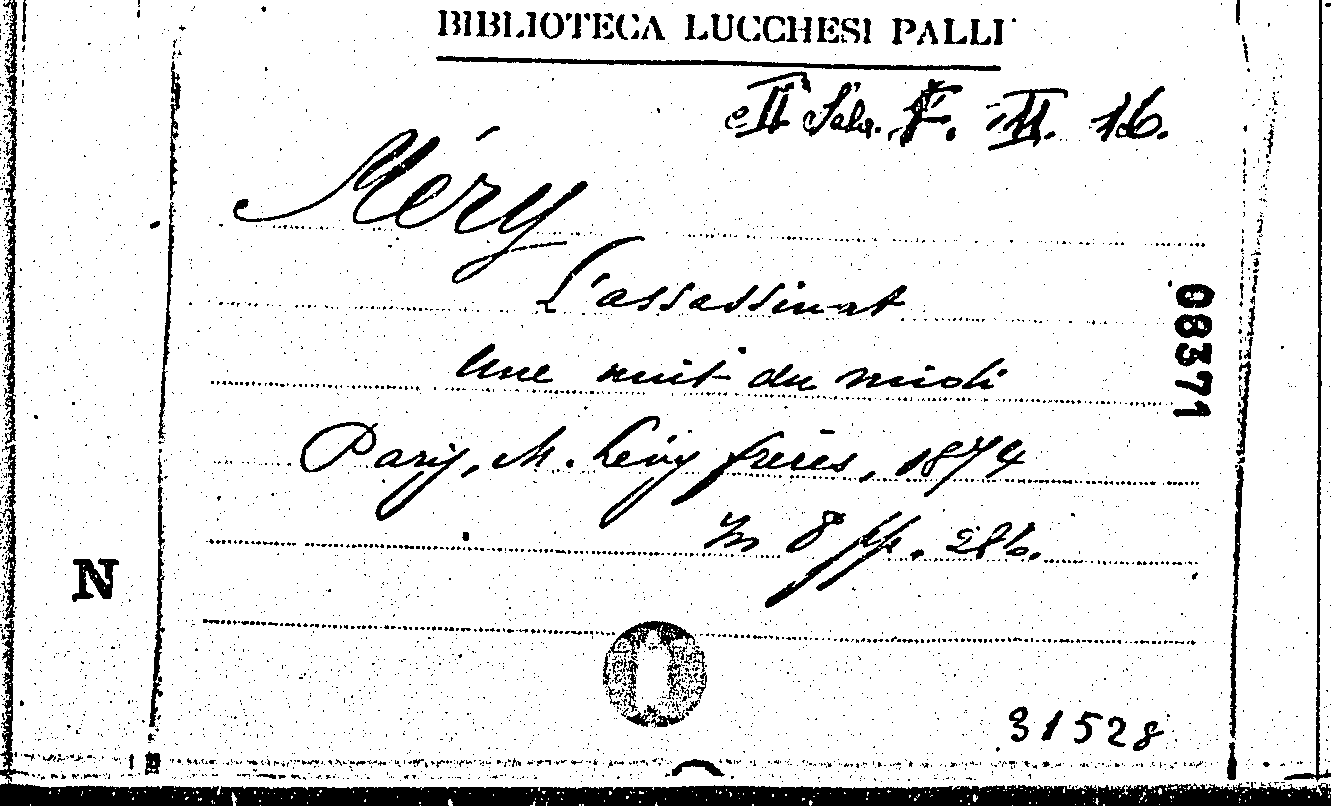 BIBLIOTECA LUCCHESI PALLI
II Sala. F. III. 16.
Méry
L'assassinat
Une nuit du midi
08371
Paris, M. Lévy frères, 1874
In 8 pp. 286.
N
31528